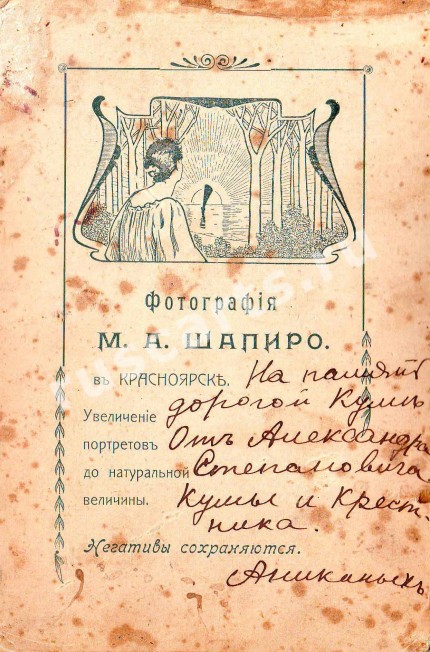 Фотографія
М. А. ШАПИРО.
въ КРАСНОЯРСКѢ.
Увеличеніе
портретовъ
до натуральной
величины.
Негативы сохраняются.
На память
дорогой Кумѣ
Отъ Александра
Степановича
Кумы и Крест-
ника.
Аниканыхъ
ruscarts.ru